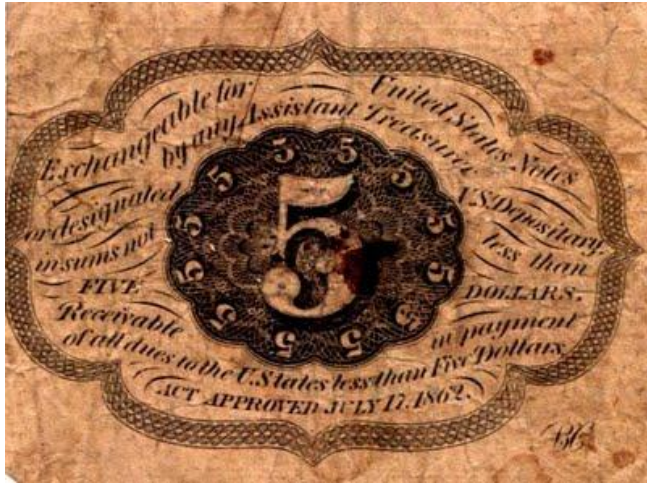 Exchangeable for United States Notes
by any Assistant Treasurer
or designated U.S. Depositary,
in sums not less than
FIVE DOLLARS.
Receivable in payment
of all dues to the U. States less than Five Dollars
ACT APPROVED JULY 17, 1862.
5
5 5 5 5 5 5 5 5 5 5 5 5